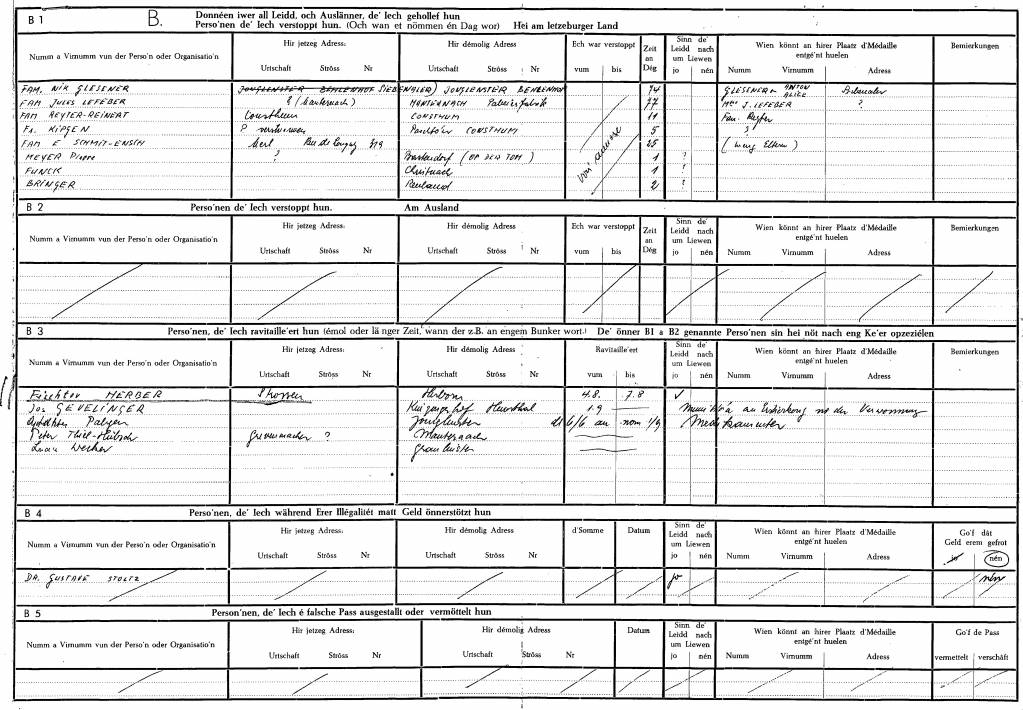 B 1 B. Donnéen iwer all Leidd, och Auslänner, de' Iech gehollef hun
Perso'nen de' Iech verstoppt hun. (Och wan et nömmen én Dag wor) Hei am letzeburger Land
Numm a Virnumm vun der Perso'n oder Organisatio'n
Hir jetzeg Adress: Hir démolig Adress Ech war verstoppt Zeit an Dég Sinn de' Leidd nach um Liewen Wien könnt an hirer Plaatz d'Médaille entgé'nt huelen Bemierkungen
Urtschaft Ströss Nr Urtschaft Ströss Nr vum bis jo nén Numm Virnumm Adress
FAM. NIK GLESENER JONGLENSTER JONGLENSTER 74 GLESENER ANTON ALICE
FAM JULES LEFEBER ? MANTERNACH 77 J. LEFEBER ?
FAM REYTER-REINERT Consthum CONSTHUM 11 Fam.
? CONSTHUM 5
FAM E SCHMIT-ENSCH 25
MEYER Pierre ? 1 ?
FUNCK Christnach 1 ?
BRINGER 2 ?
B 2 Perso'nen de' Iech verstoppt hun. Am Ausland
Numm a Virnumm vun der Perso'n oder Organisatio'n
Hir jetzeg Adress: Hir démolig Adress Ech war verstoppt Zeit an Dég Sinn de' Leidd nach um Liewen Wien könnt an hirer Plaatz d'Médaille entgé'nt huelen Bemierkungen
Urtschaft Ströss Nr Urtschaft Ströss Nr vum bis jo nén Numm Virnumm Adress
B 3 Perso'nen, de' Iech ravitaille'ert hun (émol oder länger Zeit, wann der z.B. an engem Bunker wort.) De' önner B1 a B2 genannte Perso'nen sin hei nöt nach eng Ke'er opzeziélen
Numm a Virnumm vun der Perso'n oder Organisatio'n
Hir jetzeg Adress: Hir démolig Adress Ravitaille'ert Sinn de' Leidd nach um Liewen Wien könnt an hirer Plaatz d'Médaille entgé'nt huelen Bemierkungen
Urtschaft Ströss Nr Urtschaft Ströss Nr vum bis jo nén Numm Virnumm Adress
HERBER Herborn 4.8. 7.8
Jos GEVELINGER 1.9
Jonglenster 6/6 1/9
Peter Grevenmacher ? Manternach
B 4 Perso'nen, de' Iech während Erer Illégalitét matt Geld önnerstötzt hun
Numm a Virnumm vun der Perso'n oder Organisatio'n
Hir jetzeg Adress: Hir démolig Adress d'Somme Datum Sinn de' Leidd nach um Liewen Wien könnt an hirer Plaatz d'Médaille entgé'nt huelen Go'f dât Geld erem gefrot
Urtschaft Ströss Nr Urtschaft Ströss Nr jo nén Numm Virnumm Adress jo nén
DR. GUSTAVE STOLTZ jo nén
B 5 Person'nen, de' Iech é falsche Pass ausgestallt oder vermöttelt hun
Numm a Virnumm vun der Perso'n oder Organisatio'n
Hir jetzeg Adress: Hir démolig Adress Datum Sinn de' Leidd nach um Liewen Wien könnt an hirer Plaatz d'Médaille entgé'nt huelen Go'f de Pass
Urtschaft Ströss Nr Urtschaft Ströss Nr jo nén Numm Virnumm Adress vermettelt verschâft